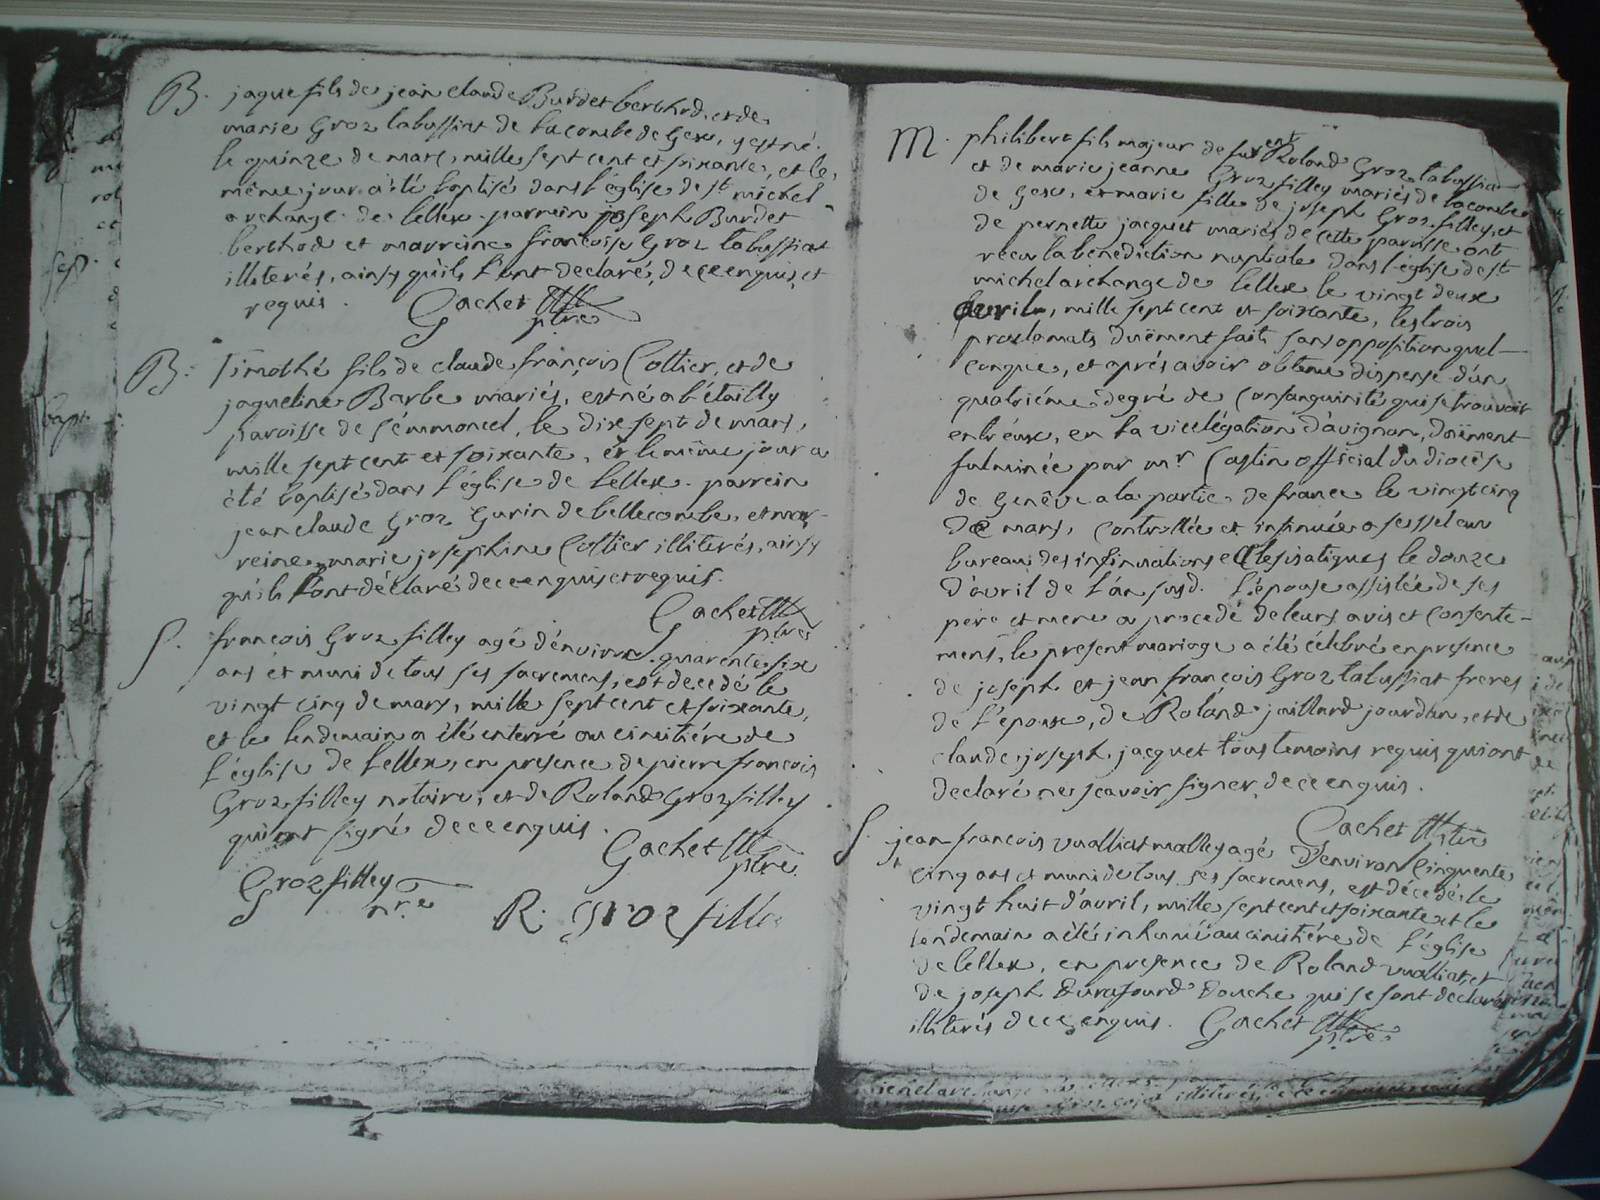 B. jaque fils de jean claude Burdet berthod, et de
marie Groz labussiat de lacombe de Gex, y est né
le quinze de mars, mille sept cent et soixante, et le
même jour a été baptisé dans l'église de st michel
archange de lellex. parrein joseph Burdet
berthod et marreine francoise Groz labussiat
illiterés, ainsy qu'ils l'ont declaré, de ce enquis, et
requis. Gachet
ptre
B: Timothé fils de claude françois Cottier, et de
jaqueline Barbe mariés, est né a l'étailly
paroisse de sémmoncel, le dixsept de mars,
mille sept cent et soixante, et le même jour a
été baptisé dans l'église de lellex. parrein
jean claude Groz Gurin de bellecombe, et mar-
reine marie josephine Cottier illiterés, ainsy
qu'ils l'ont déclaré de ce enquis et requis.
Gachet
ptre
S. francois Groz filley agé d'environ quarente six
ans et muni de tous ses sacremens, est decedé le
vingt cinq de mars, mille sept cent et soixante,
et le lendemain a été enterré au cimitiére de
l'église de lellex, en presence de pierre francois
Groz filley notaire, et de Roland Groz filley
qui ont signé de ce enquis.
Gachet
ptre
Groz filley
nre
R: Groz fille
M. philibert fils majeur de furent Roland Groz labussiat
et de marie jeanne Groz filley mariés de lacombe
de Gex, et marie fille de joseph Groz filley, et
de pernette jacquet mariés de cette paroisse ont
recu la bénédiction nuptiale dans l'église de st
michel archange de lellex le vingt deux
avril, mille sept cent et soixante, les trois
proclamats duëment faits sans opposition quel-
conque, et aprés avoir obtenu dispense d'un
quatriéme degré de Consanguinité qui se trouvoit
entr'eux, en la vicelégation d'avignon, duëment
fulminée par mr Castin official du diocèse
de Genêve a la partie de france le vingt cinq
de mars, Controllée et insinuée a sessel au
bureau des insinuations ecclesisatiques le douze
d'avril de l'án susd. l'épouse assistée de ses
pere et mere a procedé de leurs avis et consente-
ment, le present mariage a été célebré en presence
de joseph et jean françois Groz labussiat freres
de l'époux, de Roland juillard jourdan, et de
claude joseph jacquet tous temoins requis qui ont
declaré ne scavoir signer, de ce enquis.
Gachet ptre
S. jean francois vualliat malley agé d'environ Cinquente
cinq ans et muni de tous ses sacremens, est décedé le
vingt huit d'avril, mille sept cent et soixante et le
lendemain a été inhumé au cimitiére de l'église
de lellex, en presence de Roland vualliat, et
de joseph Durafourd Bouche qui se sont declarés
illiterés de ce enquis. Gachet
ptre